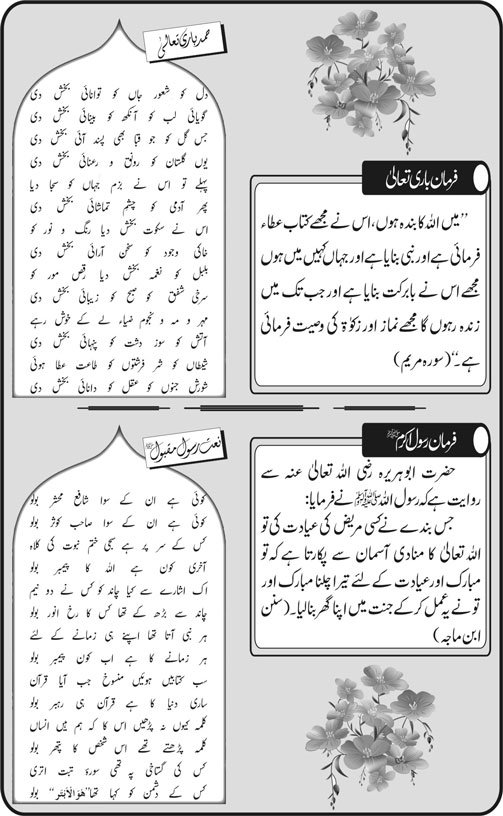 فرمان باری تعالیٰ
’’میں اللہ کا بندہ ہوں، اس نے مجھے کتاب عطاء
فرمائی ہے اور نبی بنایا ہے اور جہاں کہیں میں ہوں
مجھے اس نے بابرکت بنایا ہے اور جب تک میں
زندہ رہوں گا مجھے نماز اور زکوٰۃ کی وصیت فرمائی
ہے۔‘‘ (سورہ مریم)
حمد باری تعالیٰ
دل کو شعور جاں کو توانائی بخش دی
گویائی لب کو آنکھ کو بینائی بخش دی
جس گل کو جو قبا بھی پسند آئی بخش دی
یوں گلستان کو رونق و رعنائی بخش دی
پہلے تو اس نے بزم جہاں کو سجا دیا
پھر آدمی کو چشم تماشائی بخش دی
اس نے سکوت بخش دیا رنگ و نور کو
خاکی وجود کو سخن آرائی بخش دی
بلبل کو نغمہ بخش دیا رقص مور کو
سرخی شفق کو صبح کو زیبائی بخش دی
مہر و مہ و نجوم ضیاء لے کے خوش رہے
آتش کو سوز دشت کو پنہائی بخش دی
شیطاں کو شر فرشتوں کو طاعت عطا ہوئی
شورش جنوں کو عقل کو دانائی بخش دی
فرمان رسول اکرم ﷺ
حضرت ابوہریرہ رضی اللہ تعالیٰ عنہ سے
روایت ہے کہ رسول اللہ ﷺ نے فرمایا:
جس بندے نے کسی مریض کی عیادت کی تو
اللہ تعالیٰ کا منادی آسمان سے پکارتا ہے کہ تو
مبارک اور عیادت کے لئے تیرا چلنا مبارک اور
تو نے یہ عمل کر کے جنت میں اپنا گھر بنا لیا۔ (سنن
ابن ماجہ)
نعت رسول مقبول ﷺ
کوئی ہے ان کے سوا شافع محشر بولو
کوئی ہے ان کے سوا صاحب کوثر بولو
کس کے سر پر ہے سجی ختم نبوت کی کلاہ
آخری کون ہے اللہ کا پیمبر بولو
اک اشارے سے کیا چاند کو کس نے دو نیم
چاند سے بڑھ کے تھا کس کا رخ انور بولو
ہر نبی آتا تھا اپنے ہی زمانے کے لئے
ہر زمانے کا ہے اب کون پیمبر بولو
سب کتابیں ہوئیں منسوخ جب آیا قرآن
ساری دنیا کا ہے قرآن ہی رہبر بولو
کلمہ کیوں نہ پڑھیں اس کا کہ ہم ہیں انساں
کلمہ پڑھتے تھے اس شخص کا پتھر بولو
کس کی گستاخی پہ تھی سورۂ تبت اتری
کس کے دشمن کو کہا تھا ’’هُوَ الْاَبْتَر‘‘ بولو